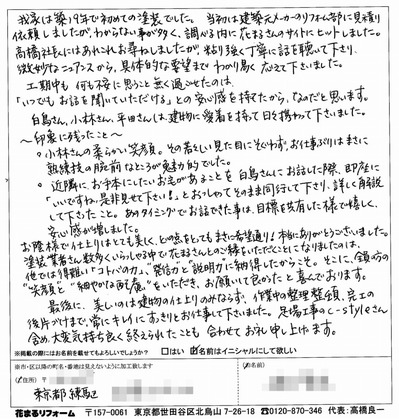 我家は築19年で初めての塗装でした。当初は建築元メーカーのリフォーム部に見積り
依頼しましたが、わからない事が多く、調べる内に花まるさんのサイトにヒットしました。
高橋社長にはあれこれお尋ねしましたが、粘り強く丁寧に話を聴いて下さり、
微妙なニュアンスから、具体的な要望までわかり易く応えて下さいました。
工期中も何も不安に思うこと無く過ごせたのは、
「いつでもお話を聞いていただける」との安心感を持てたから、なのだと思います。
白鳥さん、小林さん、平田さんは、建物に愛着を持って日々携わって下さいました。
〜印象に残ったこと〜
○小林さんの柔らかい笑顔。その若々しい見た目にそぐわず、お仕事ぶりはまさに
熟練技の腕前なところが魅力的でした。
○近隣に、お手本にしたいお宅があることを白鳥さんにお話した際、即座に
「いいですね。是非見せて下さい!」とおっしゃてそのまま同行して下さり、詳しく解説
して下さったこと。あのタイミングでお話できた事は、目標を共有した様で嬉しく、
安心感が増しました。
お陰様で仕上りはとても美しく、どの点をとってもまさに希望通り♪本当にありがとうございました。
塗装業者さん数多くいらっしゃる中で花まるさんとのご縁をいただくことになりましたのは、
他では得難い"コトバの力"、"発信力と説明力"に納得したからこそ。そこに、全員の
"笑顔と""細やかな配慮"をいただき、お願いして良かったと喜んでおります。
最後に、美しいのは建物の仕上りのみならず、作業中の整理整頓、完工の
後片づけまで、常にキレイにすっきりとお仕事して下さいました。足場工事のC-styleさん
含め、大変気持ち良く終えられたことも合わせてお礼申し上げます。
※掲載の際にはお名前を載せてもよろしいでしょうか? □はい ☑名前をイニシャルにして欲しい
※市・区以降の町名・番地は見えないように加工致します。
〈住所〉 〈お名前〉
東京都 練馬区
花まるリフォーム 〒157-0061 東京都世田谷区北烏山7-26-18 0120-870-346 代表:高橋良一